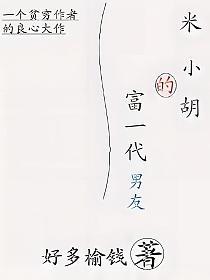 一个贫穷作者
的良心大作
米小胡
的
富一代男友
好多榆钱 著